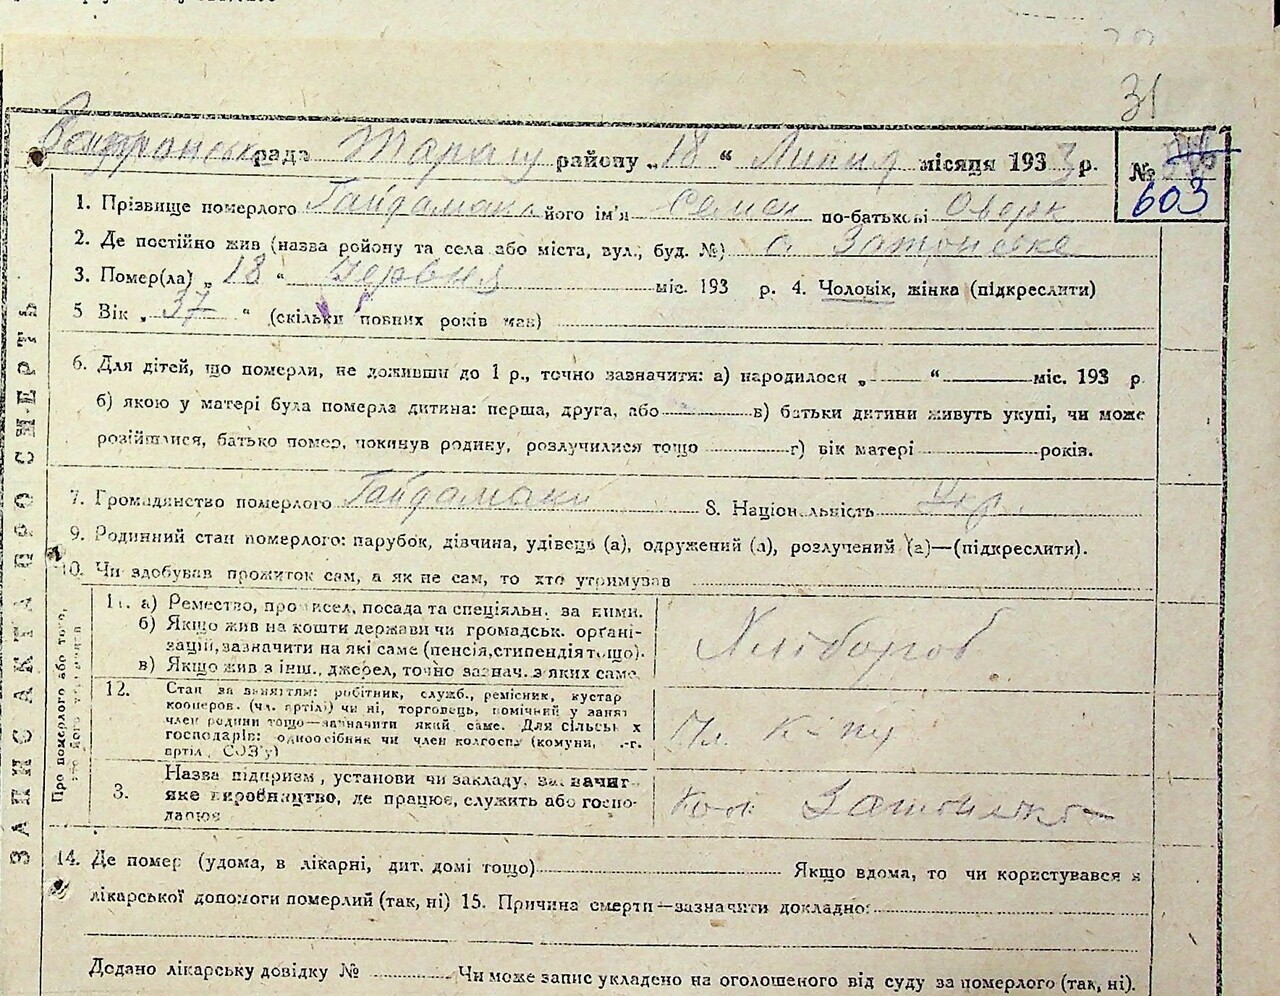 31
рада Таращ району „18“ Липня місяця 1933 р. №
603
1. Прізвище померлого Гайдамака його ім'я Семен по-батькові Оверк
2. Де постійно жив (назва ройону та села або міста, вул., буд. №) с Затонське
3. Помер(ла) „18“ Червня міс. 193 р. 4. Чоловік, жінка (підкреслити)
5 Вік „37“ (скільки повних років мав)
6. Для дітей, що померли, не доживши до 1 р., точно зазначити: а) народилося „ “ міс. 193 р.
б) якою у матері була померла дитина: перша, друга, або в) батьки дитини живуть укупі, чи може
розійшлися, батько помер, покинув родину, розлучилися тощо г) вік матері років.
7. Громадянство померлого Гайдамаки 8. Національність Укр.
9. Родинний стан померлого: парубок, дівчина, удівець (а), одружений (а), розлучений (а)—(підкреслити).
10. Чи здобував прожиток сам, а як не сам, то хто утримував
ЗАПИС АКТА ПРО СМЕРТЬ
Про померлого або того,
хто його утримував
11. а) Ремество, промисел, посада та спеціяльн. за ними.
б) Якщо жив на кошти держави чи громадськ. орґані-
зацій, зазначити на які саме (пенсія, стипендія тощо).
в) Якщо жив з інш. джерел, точно зазнач. з яких саме
Хлібороб
12. Стан за заняттям: робітник, служб., ремісник, кустар
кооперов. (чл. артілі) чи ні, торговець, помічний у занят
член родини тощо—зазначити який саме. Для сільськ х
господарів: одноосібник чи член колгоспу (комуни, -г.
артіл, СОЗ'у)
Чл. к-гпу
3. Назва підпризм, установи чи закладу, зазначит-
яке виробництво, де працює, служить або госпо-
дарює
14. Де помер (удома, в лікарні, дит. домі тощо) Якщо вдома, то чи користувався з
лікарської допомоги померлий (так, ні) 15. Причина смерти—зазначити докладно:
Додано лікарську довідку № Чи може запис укладено на оголошеного від суду за померлого (так, ні).